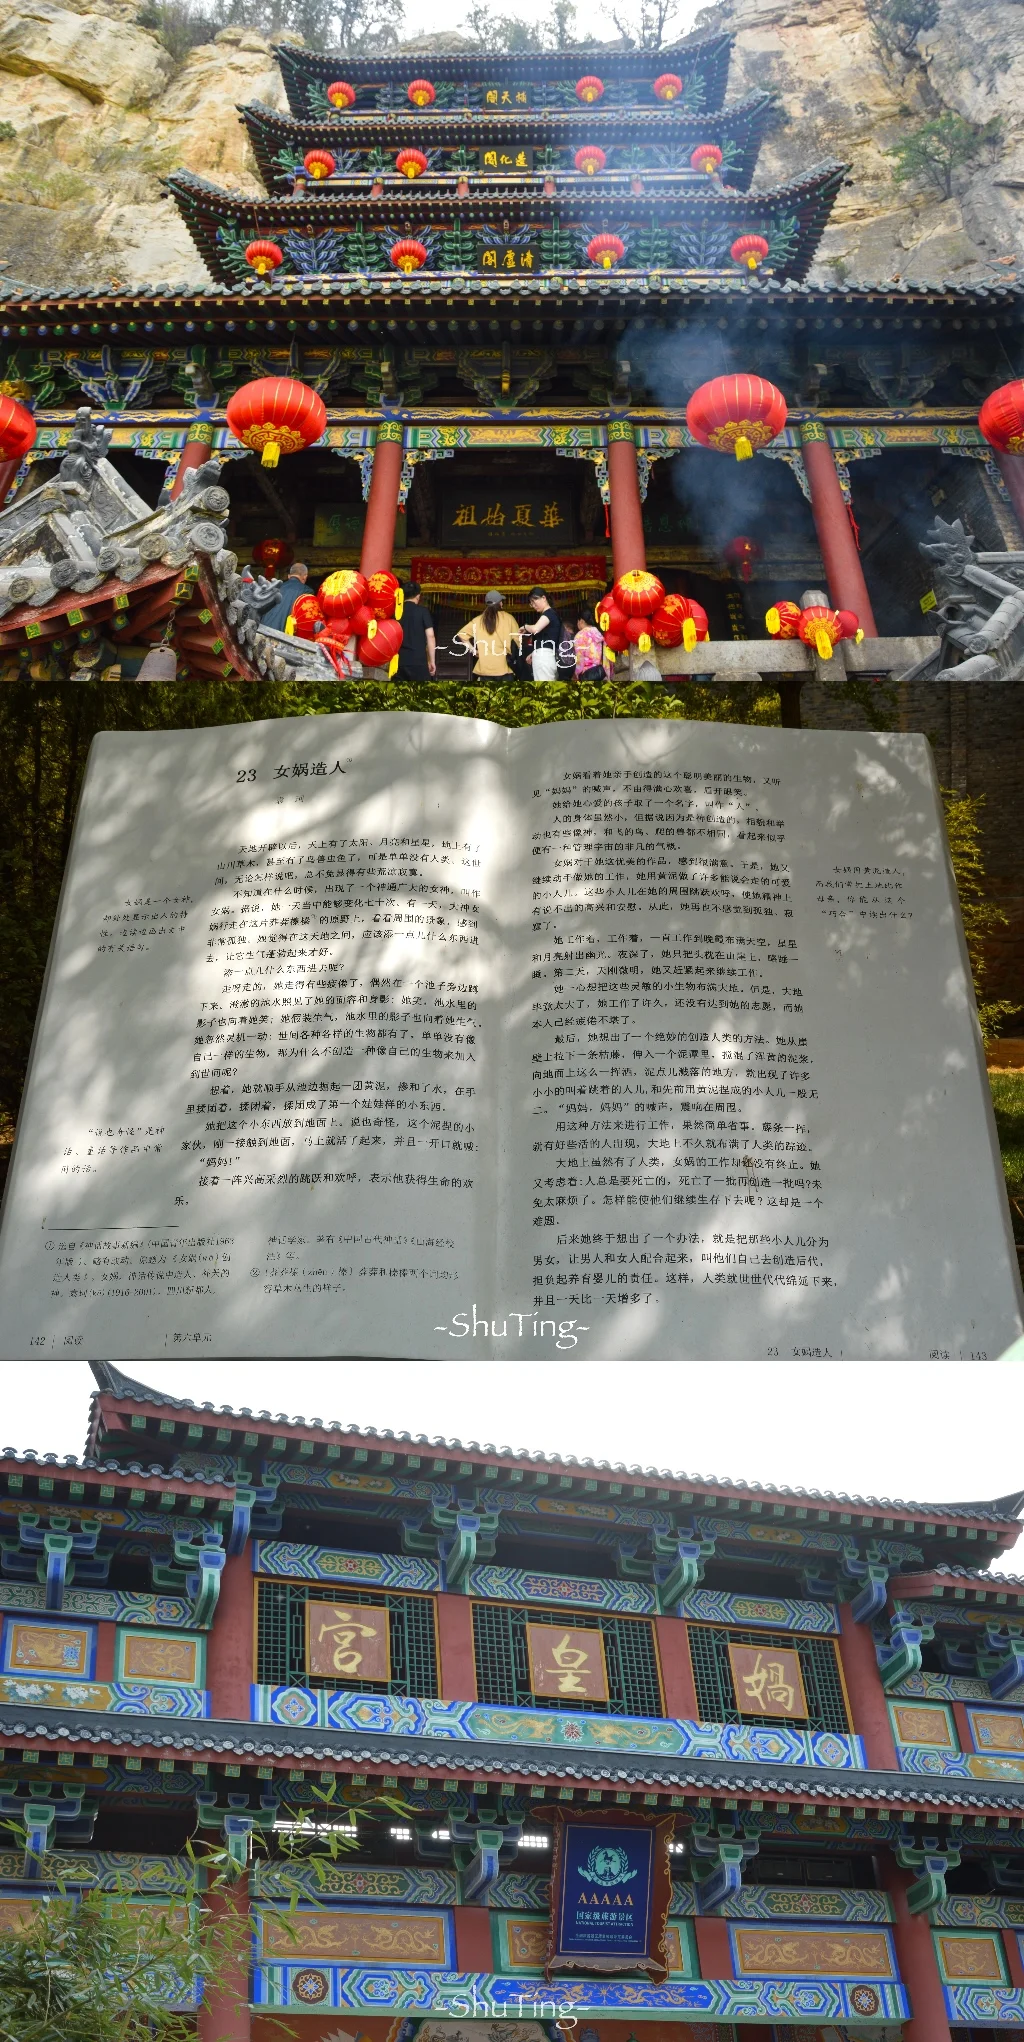 補天閣
造化閣
清虛閣
華夏始祖
~ShuTing~
23 女娲造人
袁珂
天地开辟以后，天上有了太阳、月亮和星星，地上有了
山川草木，甚至有了鸟兽虫鱼了，可是单单没有人类。这世
间，无论怎样说吧，总不免显得有些荒凉寂寞。
不知道在什么时候，出现了一个神通广大的女神，叫作
女娲。据说，她一天当中能够变化七十次。有一天，大神女
娲行走在这片莽莽榛榛②的原野上，看看周围的景象，感到
非常孤独。她觉得在这天地之间，应该添一点儿什么东西进
去，让它生气蓬勃起来才好。
添一点儿什么东西进去呢？
走呀走的，她走得有些疲倦了，偶然在一个池子旁边蹲
下来。澄澈的池水照见了她的面容和身影；她笑，池水里的
影子也向着她笑；她假装生气，池水里的影子也向着她生气。
她忽然灵机一动：世间各种各样的生物都有了，单单没有像
自己一样的生物，那为什么不创造一种像自己的生物来加入
到世间呢？
想着，她就顺手从池边掬起一团黄泥，掺和了水，在手
里揉团着，揉团着，揉团成了第一个娃娃样的小东西。
她把这个小东西放到地面上。说也奇怪，这个泥捏的小
家伙，刚一接触到地面，马上就活了起来，并且一开口就喊：
“妈妈！”
接着一阵兴高采烈的跳跃和欢呼，表示他获得生命的欢
乐。
女娲是一个女神，
“说也奇怪”是神
话、童话等作品中常
用的话。
142 阅读
第六单元
女娲看着她亲手创造的这个聪明美丽的生物，又听
见“妈妈”的喊声，不由得满心欢喜，眉开眼笑。
她给她心爱的孩子取了一个名字，叫作“人”。
人的身体虽然小，但据说因为是神创造的，相貌和举
动也有些像神，和飞的鸟、爬的兽都不相同，看起来似乎
便有一种管理宇宙的非凡的气概。
女娲对于她这优美的作品，感到很满意。于是，她又
继续动手做她的工作，她用黄泥做了许多能说会走的可爱
的小人儿。这些小人儿在她的周围跳跃欢呼，使她精神上
有说不出的高兴和安慰。从此，她再也不感到孤独、寂
寞了。
她工作着，工作着，一直工作到晚霞布满天空，星星
和月亮射出幽光。夜深了，她只把头枕在山崖上，略睡一
睡，第二天，天刚微明，她又赶紧起来继续工作。
她一心想把这些灵敏的小生物布满大地。但是，大地
毕竟太大了，她工作了许久，还没有达到她的志愿，而她
本人已经疲倦不堪了。
最后，她想出了一个绝妙的创造人类的方法。她从崖
壁上拉下一条枯藤，伸入一个泥潭里，搅混了浑黄的泥浆，
向地面上这么一挥洒，泥点儿溅落的地方，就出现了许多
小小的叫着跳着的人儿，和先前用黄泥捏成的小人儿一般无
二。“妈妈，妈妈”的喊声，震响在周围。
用这种方法来进行工作，果然简单省事。藤条一挥，
就有好些活的人出现，大地上不久就布满了人类的踪迹。
大地上虽然有了人类，女娲的工作却还没有终止。她
又考虑着：人总是要死亡的，死亡了一批再创造一批吗？未
免太麻烦了。怎样能使他们继续生存下去呢？这却是一个
难题。
后来她终于想出了一个办法，就是把那些小人儿分为
男女，让男人和女人配合起来，叫他们自己去创造后代，
担负起养育婴儿的责任。这样，人类就世世代代绵延下来，
并且一天比一天增多了。
23 女娲造人
阅读 143
~ShuTing~
宮皇媧
AAAAA
国家级旅游景区
NATIONAL TOURIST ATTRACTION
~ShuTing~